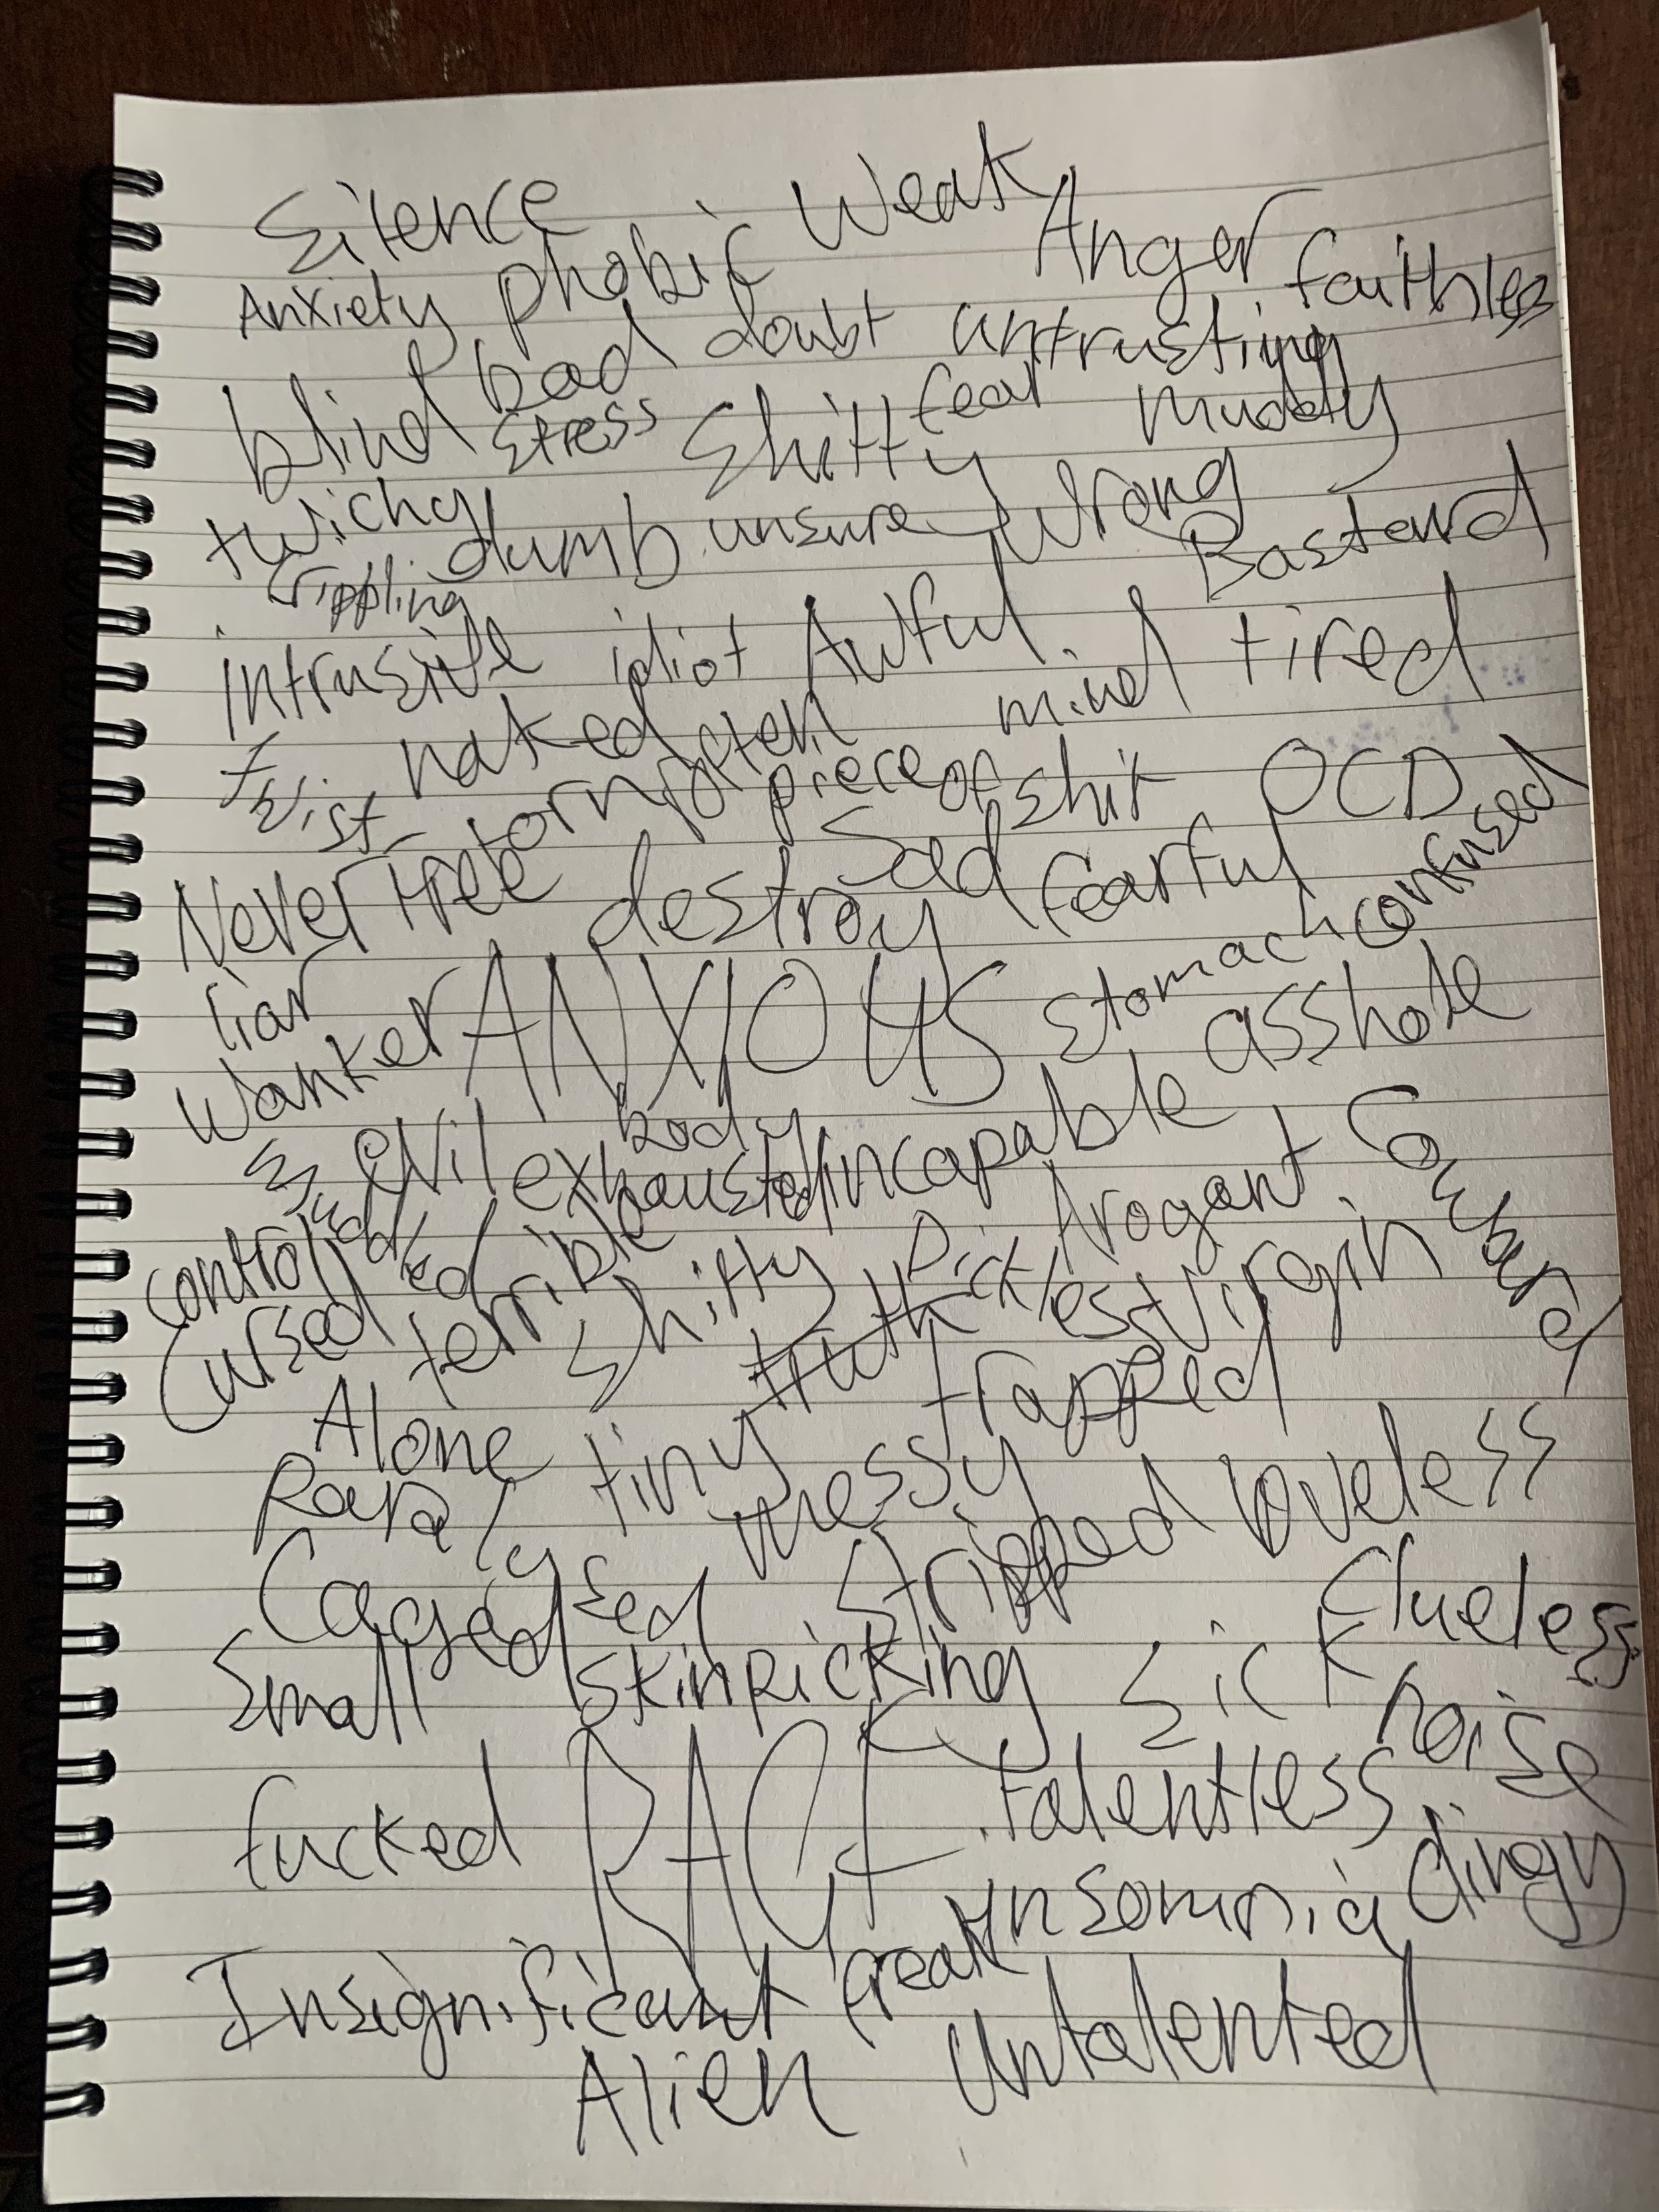 Silence Weak
Anxiety phobic Anger faithless
blind bad doubt untrusting
stress shitty fear muddy
twichy dumb unsure wrong Bastard
crippling
intrusive idiot Awful mind tired
twist naked torn rotten piece of shit OCD
Never Free destroy sad fearful confused
liar ANXIOUS stomach asshole
wanker body
evil exhausted incapable Coward
controlled terrible shitty Dickless Arogant
Cursed truth Virgin
Alone tiny trapped
Paralysed messy stripped loveless
Caged clueless
Small skin picking sick noise
fucked RAGE talentless
insomnia dingy
Insignificant freak
Alien untalented